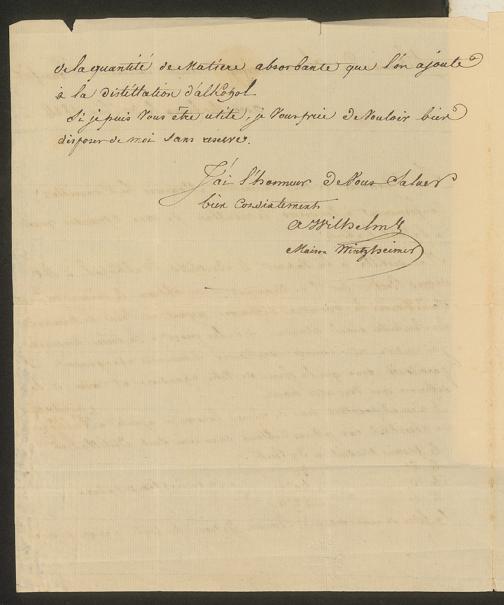 de la quantité de Matiere absorbante que l'on ajoute
à la distillation d'alkohol
Si je puis Vous être utile, je Vous prie de Vouloir bien
disposer de moi Sans reserve.
J'ai l'honneur de Vous Saluer
bien Cordialement
A Wilhelm
Maison Wintzheimer